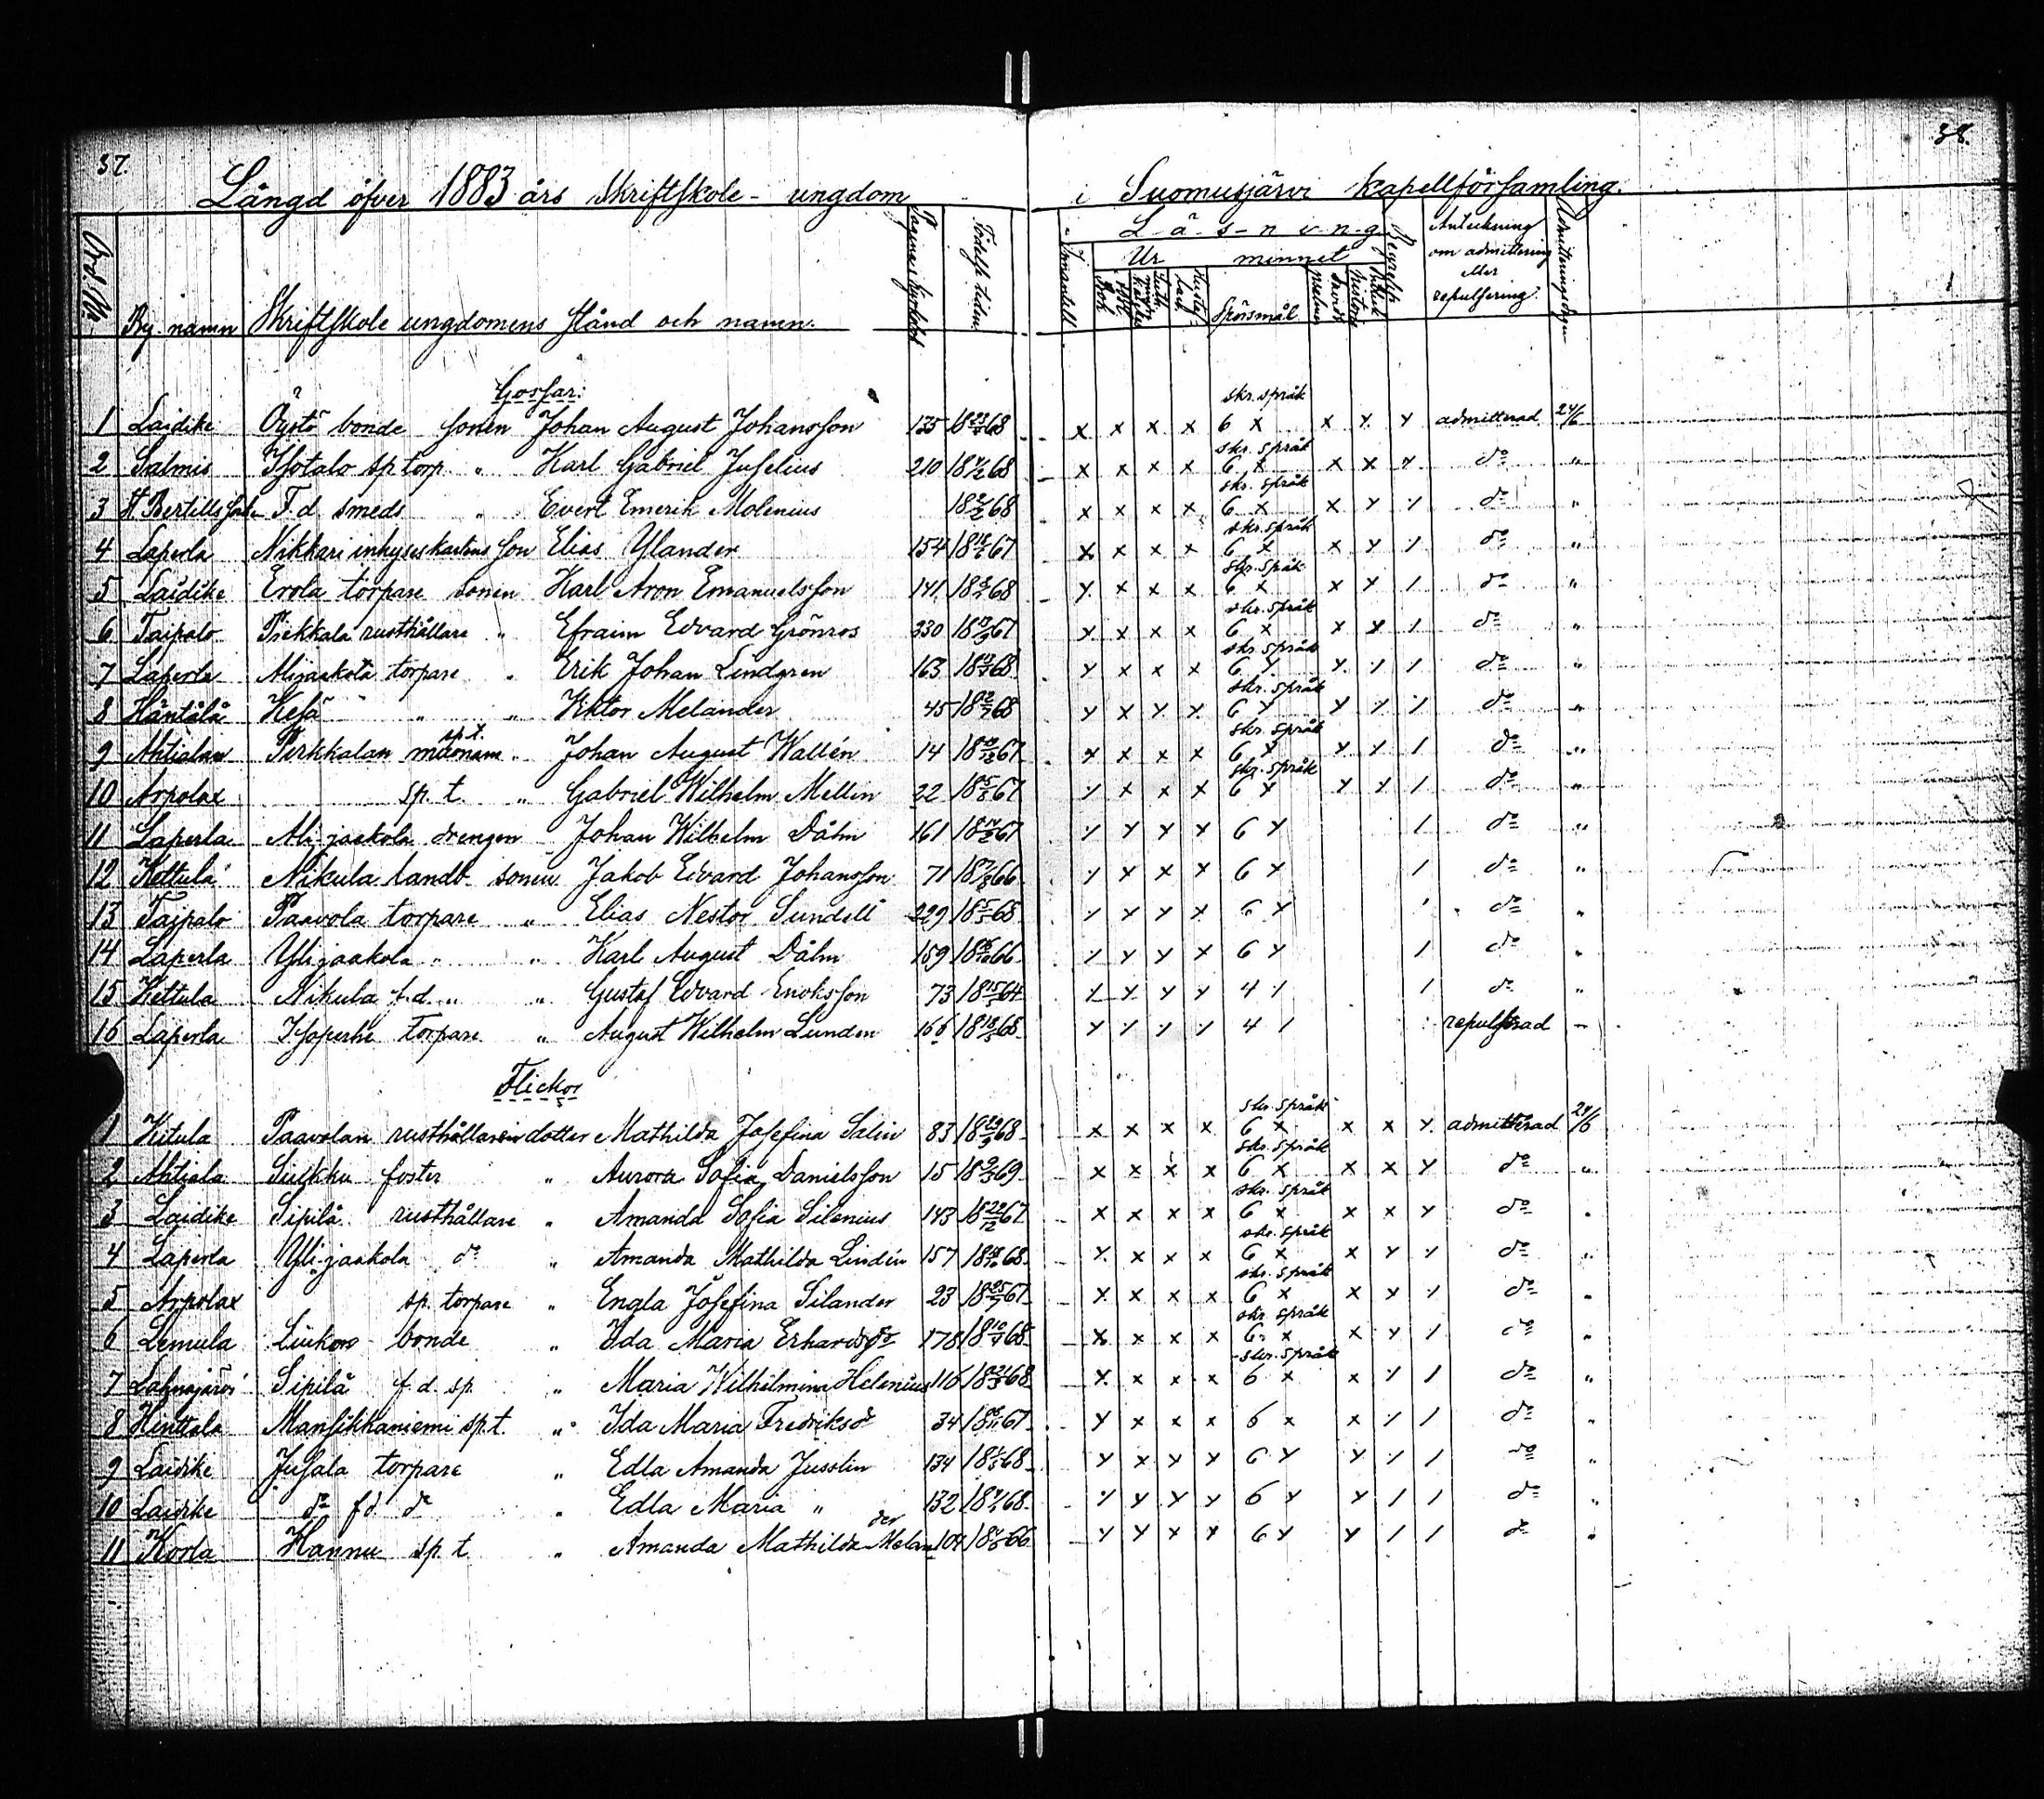 37.
38.
Längd öfver 1883 års Skriftskole-ungdom i Suomusjärvi kapellförsamling.
Ord. No. By. namn Skriftskole ungdomens stånd och namn. Födelse tiden
L-ä-s-n-i-n-g. Anteckning om admittering eller repulsering.
Innantill Ur minnet Spörsmål Begrepp
Gossar:
1 Laidike Öystö bonde sonen Johan August Johansson 135 1868 x x x x skr. språk 6 x x x x admitterad 24/6
2 Salmis Isotalo sp torp. " Karl Gabriel Juselius 210 1868 x x x x skr. språk 6 x x x x do "
3 F. d. smeds " Evert Emerik Molenius 1868 x x x x skr. språk 6 x x x / do "
4 Laperla Nikkari inhyses son Elias Ylander 154 1867 x x x x skr. språk 6 x x x / do "
5 Laidike Erola torpare sonen Karl Aron Emanuelsson 141 1868 x x x x skr. språk 6 x x x / do "
6 Taipalo Piekkala rusthållare " Efraim Edvard Grönros 230 1867 x x x x skr. språk 6 x x x / do "
7 Laperla Alijaakola torpare " Erik Johan Lindgren 163 1868 x x x x skr. språk 6 x x / / do "
8 Häntälä Kesä " " Viktor Melander 45 1868 x x x x skr. språk 6 x x / / do "
9 Ahtiala Perkkalan sp. t. " Johan August Wallén 14 1867 x x x x skr. språk 6 x x x / do "
10 Arpolax sp. t. " Gabriel Wilhelm Mellin 22 18 5/8 67 x x x x skr. språk 6 x x x / do "
11 Laperla Alijaakola drengen Johan Wilhelm Dålm 161 1867 x x x x 6 x / do "
12 Kettula Nikula landb. sonen Jakob Edvard Johansson 71 1866 / x x x 6 x / do "
13 Taipalo Paavola torpare " Elias Nestor Sundell 229 1868 x x x x 6 x ' do "
14 Laperla Ylijaakola " " Karl August Dålm 159 1866 x x x x 6 x / do "
15 Kettula Nikula f.d. " " Gustaf Edvard Enoksson 73 1864 x x x x 4 / / do "
16 Laperla Isoperhe torpare " August Wilhelm Lunden 166 1868 x x x x 4 / repulserad -
Flickor
1 Kitula Paavolan rusthållare dotter Mathilda Josefina Salin 83 1868 x x x x skr. språk 6 x x x x admitterad 24/6
2 Ahtiala Sulkku foster " Aurora Sofia Danielsson 15 1869 x x x x skr. språk 6 x x x x do "
3 Laidike Sipilä rusthållare " Amanda Sofia Silenius 143 18 22/12 67 x x x x skr. språk 6 x x x x do "
4 Laperla Ylijaakola do " Amanda Mathilda Lindén 157 1868 x x x x skr. språk 6 x x x x do "
5 Arpolax sp. torpare " Engla Josefina Silander 23 18 25/7 67 x x x x skr. språk 6 x x x / do "
6 Lemula bonde " Ida Maria Erhardsdr 178 1868 x x x x skr. språk 6 x x x / do "
7 Lahnajärvi Sipilä f.d. sp. " Maria Wilhelmina Helenius 116 1868 x x x x skr. språk 6 x x / / do "
8 Hintala Mansikkaniemi sp.t. " Ida Maria Fredriksd 34 1867 x x x x 6 x x / / do "
9 Laidike Jusala torpare " Edla Amanda Jusslin 134 1868 x x x x 6 x x / / do "
10 Laidike do fd. do " Edla Maria " 132 1868 x x x x 6 x x / / do "
11 Korla Hannu sp. t. " Amanda Mathilda Melander 104 1866 x x x x 6 x x / / do "